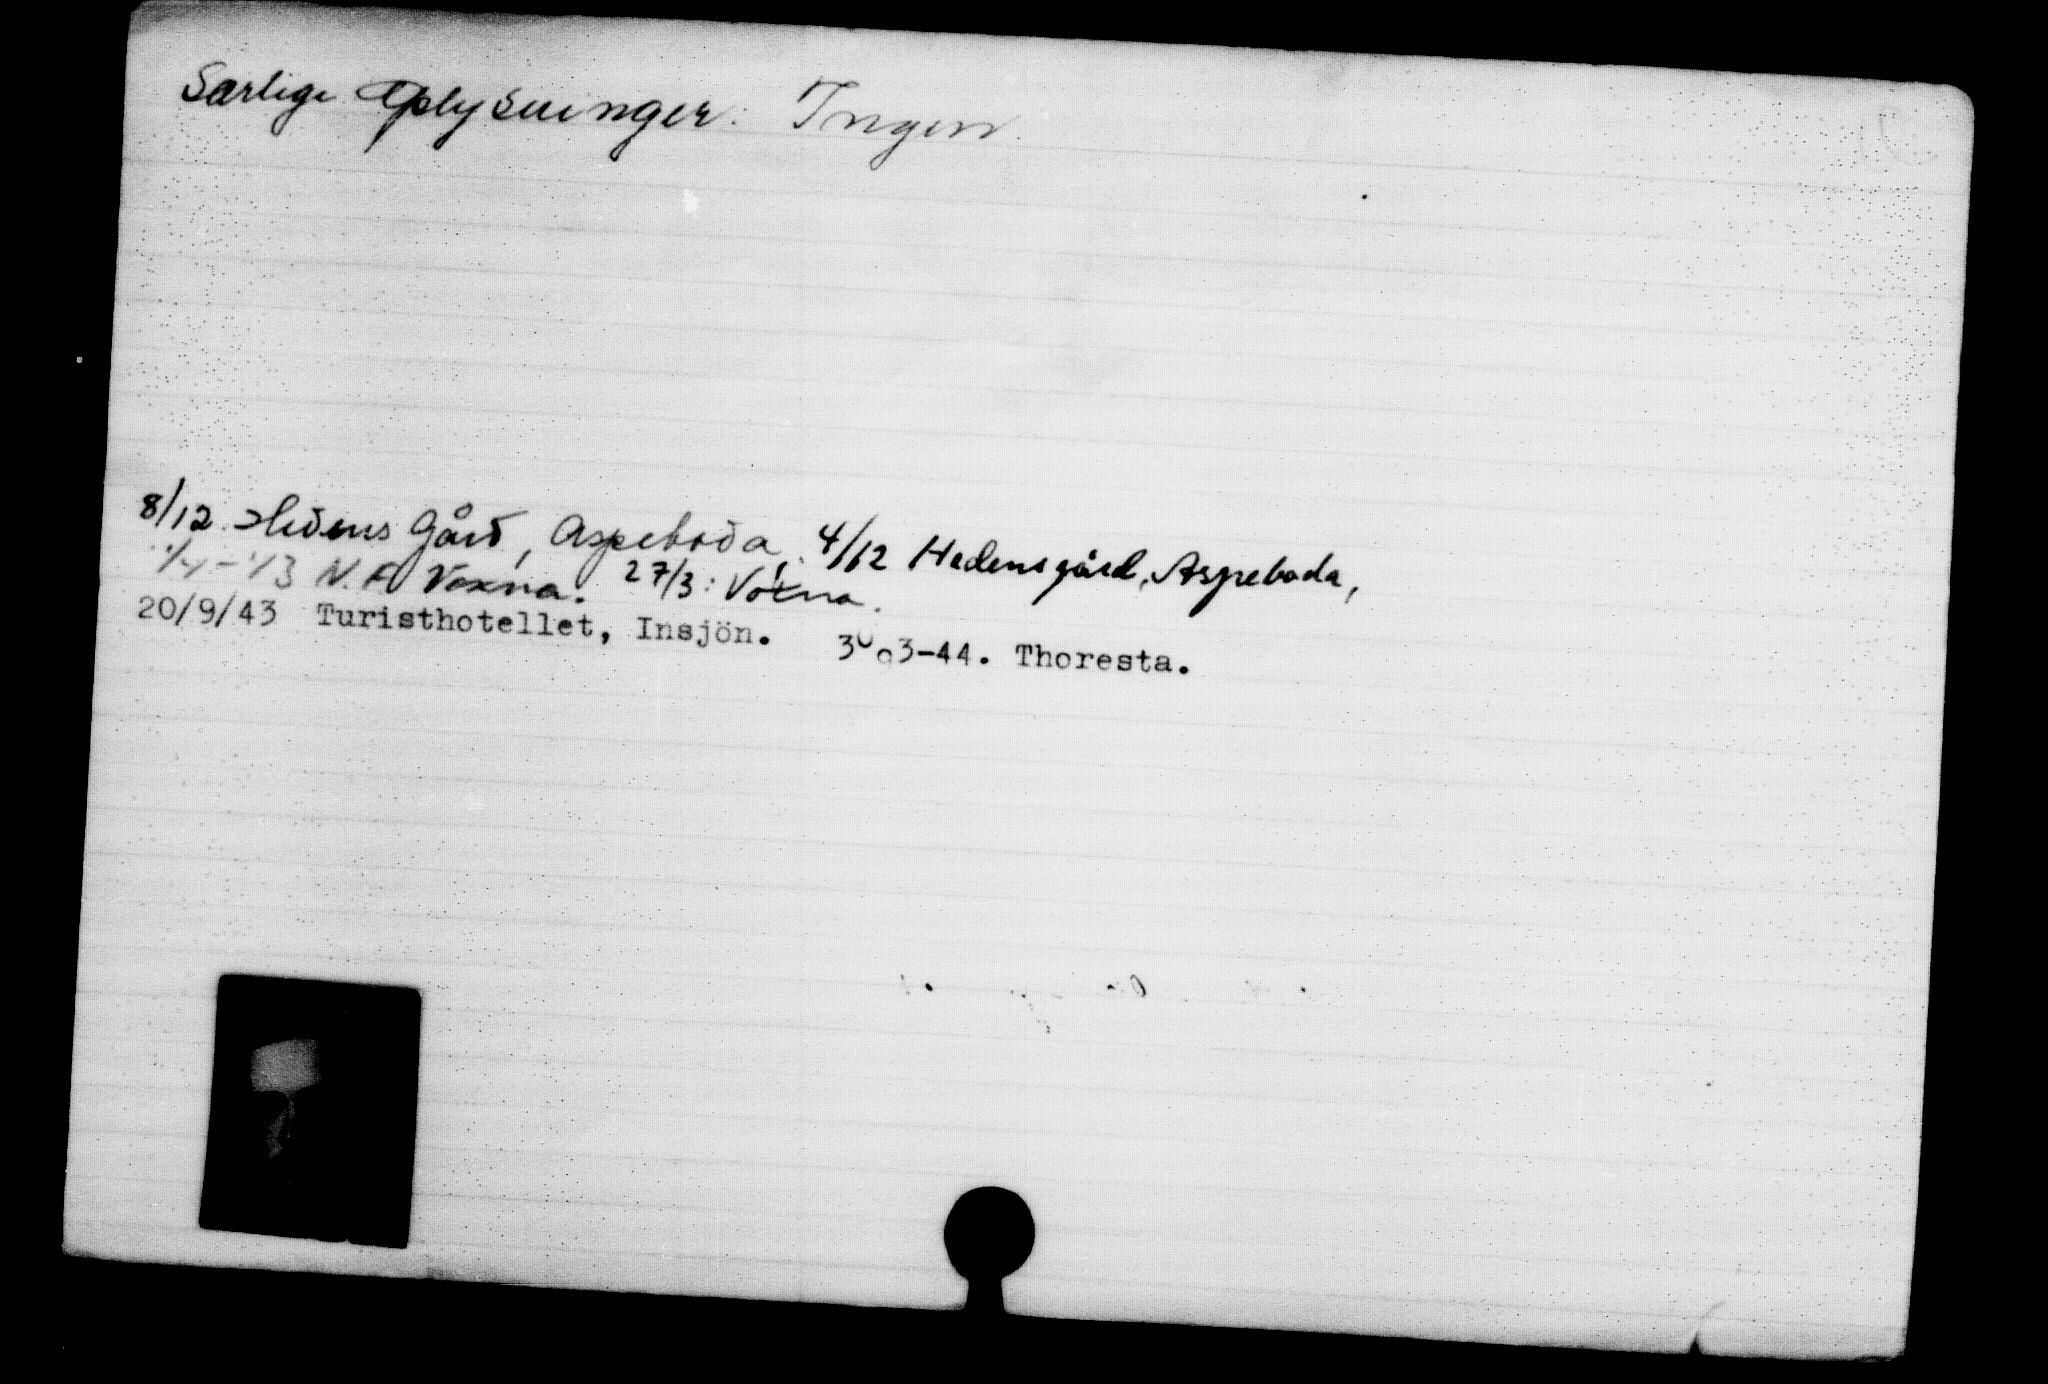 Særlige Oplysninger: Ingen.
8/12 Hedens Gård, Aspeboda, 4/12 Hedensgård, Aspeboda,
1/4-43 N.F. Voxna. 27/3: Voxna.
20/9/43 Turisthotellet, Insjön. 3-44. Thoresta.